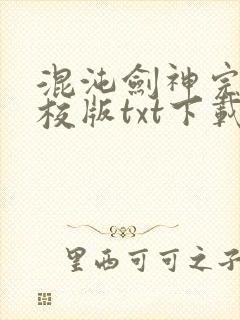 混沌劍神完
校版txt下載
里西可可之子